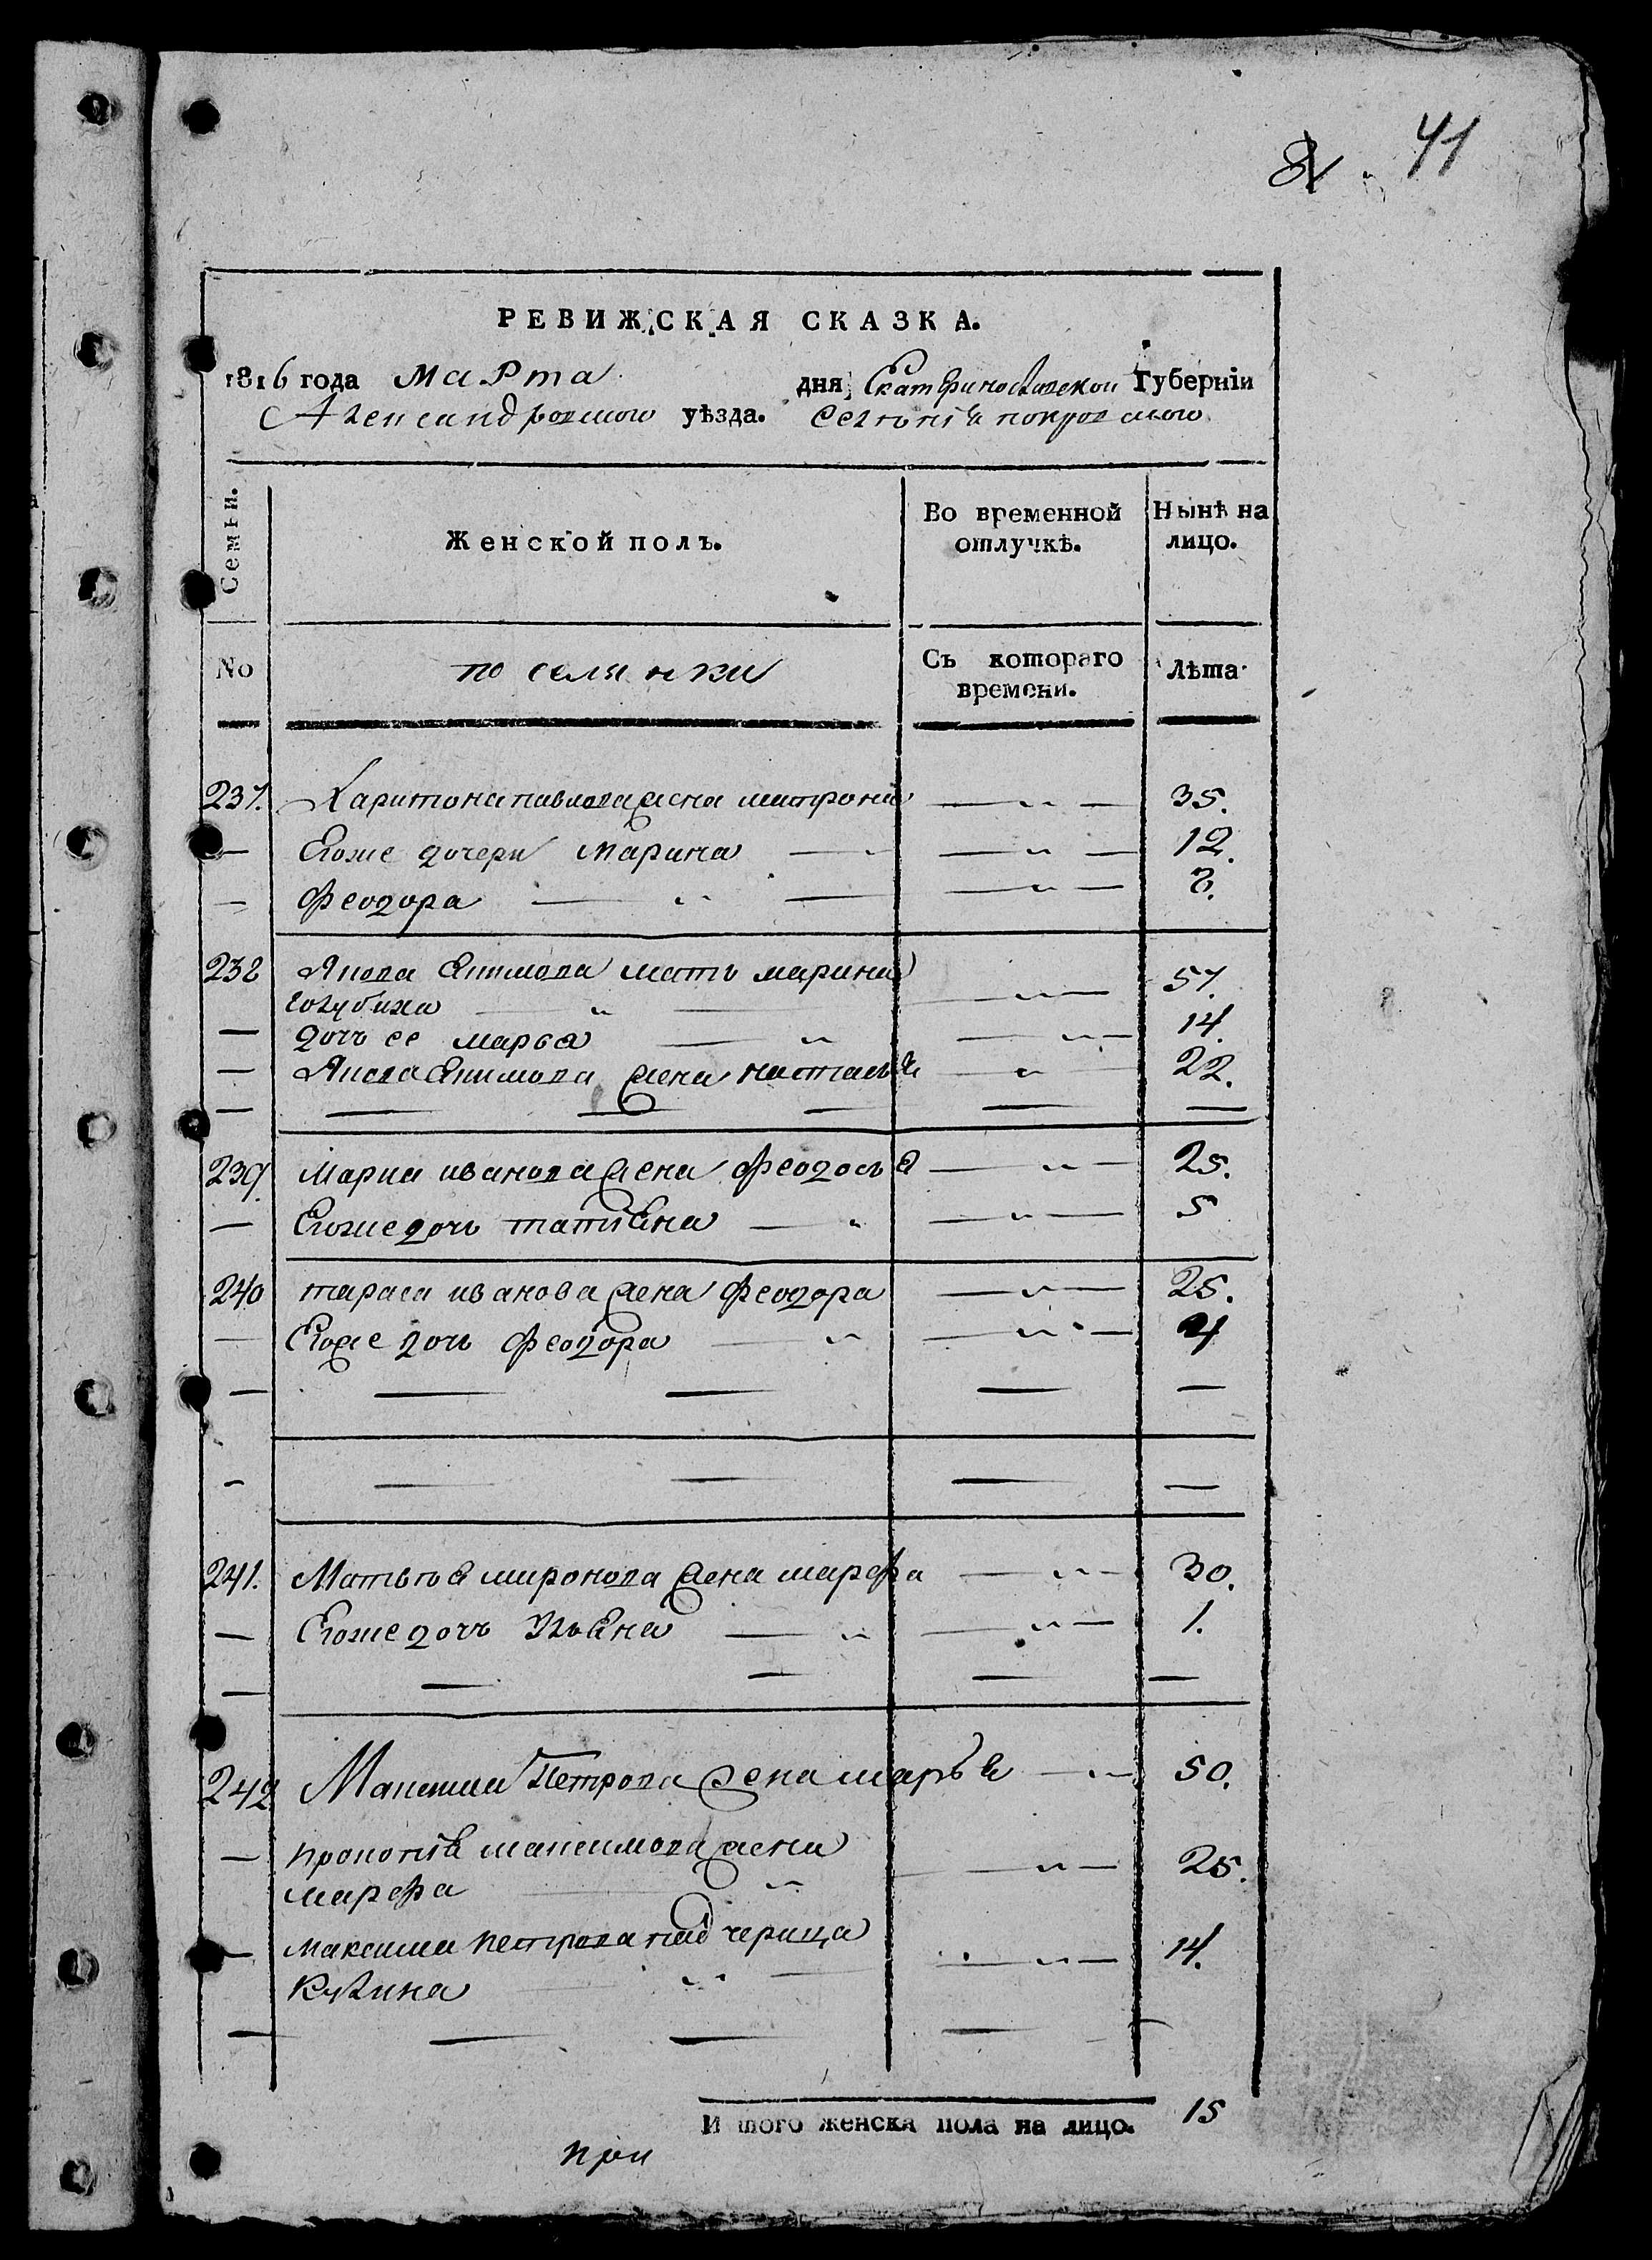 41
РЕВИЖСКАЯ СКАЗКА.
1816 года Марта дня, Екатеринославской Губерніи
Александровского уѣзда. Селенія покровского
Семьи. Женской полъ. Во временной отлучкѣ. Нынѣ на лицо.
No поселянки Съ котораго времени. Лѣта
237. Харитона павлова жена матрона — „ — 35.
— Егоже дочери Марина — „ — „ — 12.
— Феодора — „ — — „ — 8.
238 Якова Екимова мать марина
голубиха — „ — — „ — 57.
— дочь ее марья — „ — „ — 14.
— Якова Екимова жена настасья — „ — 22.
— — — — — —
239. Марка иванова жена феодосья — „ — 25.
— Егоже дочь татіяна — „ — „ — 5
240 тараса иванова жена Феодора — „ — 25.
— Егоже дочь феодора — „ — „ — 4
— — — — —
- — — — —
241. Матвѣя миронова жена марфа — „ — 30.
— Егоже дочь Ульяна — „ — „ — 1.
— — — — —
242 Максима Петрова жена марья — „ — 50.
— прокопія максимова жена
марфа — „ — „ — 25.
— максима петрова падчерица
Кулина — „ — — „ — 14.
— — — —
И того женска пола на лицо. 15
при